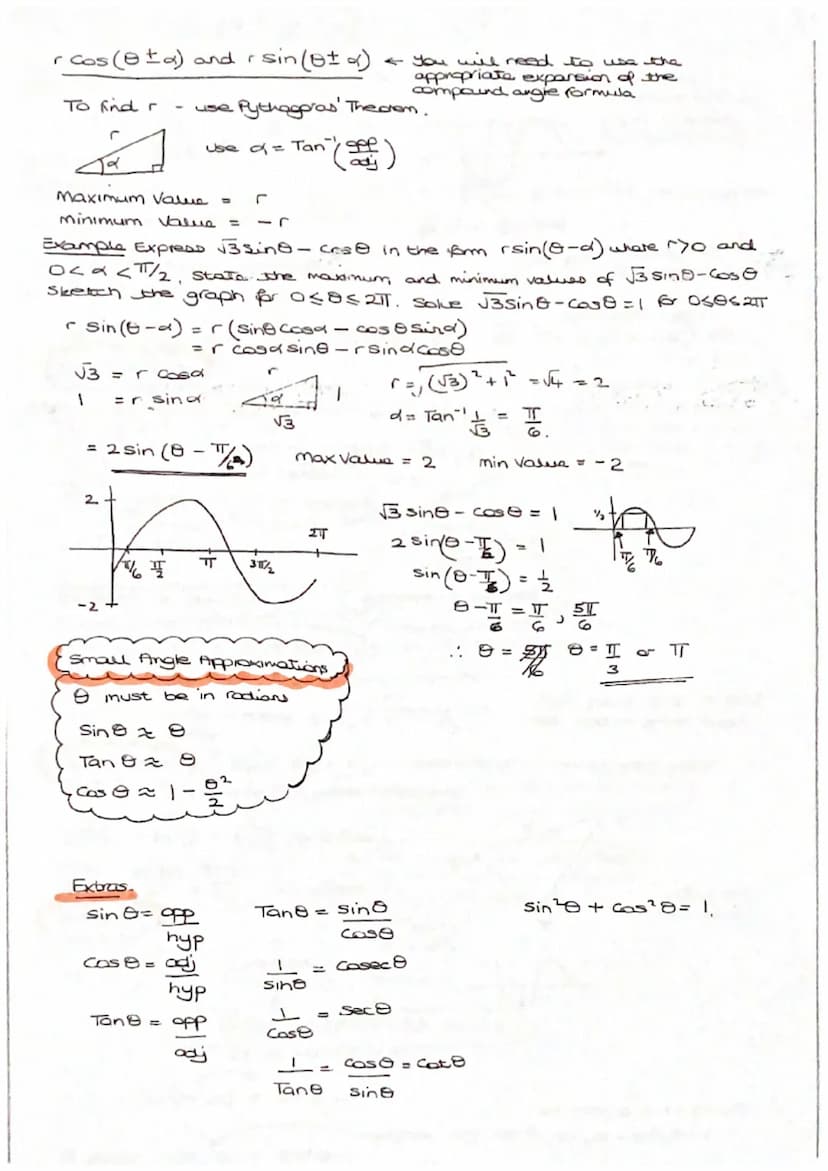 r cos(θ ± α) and r sin(θ ± α) ← You will need to use the
appropriate expansion of the
compound angle formula
To find r - use Pythagoras' Theorem.
r
α
use α = Tan⁻¹(opp/adj)
Maximum Value = r
Minimum Value = -r
Example Express √3 sinθ - cosθ in the form r sin(θ-α) where r>0 and
0<α<π/2. State the maximum and minimum values of √3 sinθ-cosθ
Sketch the graph for 0≤θ≤2π. Solve √3sinθ-cosθ=1 for 0≤θ≤2π
r sin(θ-α) = r(sinθcosα - cosθsinα)
= r cosα sinθ - r sinα cosθ
√3 = r cosα
1 = r sinα
r
α
1
√3
r = √(√3)² + 1² = √4 = 2
α = Tan⁻¹ 1/√3 = π/6.
= 2 sin(θ - π/6) max value = 2 min value = -2
2
-2
π/6 π/2 π 3π/2 2π
√3 sinθ - cosθ = 1
2 sin(θ-π/6) = 1
sin(θ-π/6) = 1/2
θ-π/6 = π/6, 5π/6
∴ θ = θ = π/3 or π
1/2
π/6
Small Angle Approximations
θ must be in radians
Sinθ ≈ θ
Tanθ ≈ θ
Cosθ ≈ 1 - θ²/2
Extras.
sinθ = opp/hyp
cosθ = adj/hyp
Tanθ = opp/adj
Tanθ = sinθ/cosθ
1/sinθ = cosecθ
1/cosθ = secθ
1/Tanθ = cosθ/sinθ = cotθ
sin²θ + cos²θ = 1.